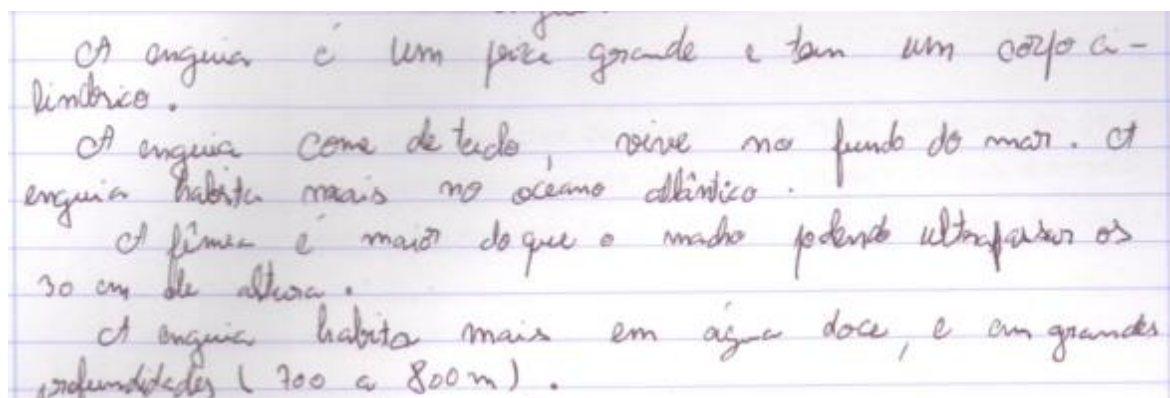 A enguia é um peixe grande e tem um corpo ci-
lindrico.
A enguia come de tudo, vive no fundo do mar. A
enguia habita mais no oceano atlântico.
A fêmea é maior do que o macho podendo ultrapassar os
30 cm de altura.
A enguia habita mais em água doce, e em grandes
profundidades (700 a 800 m).